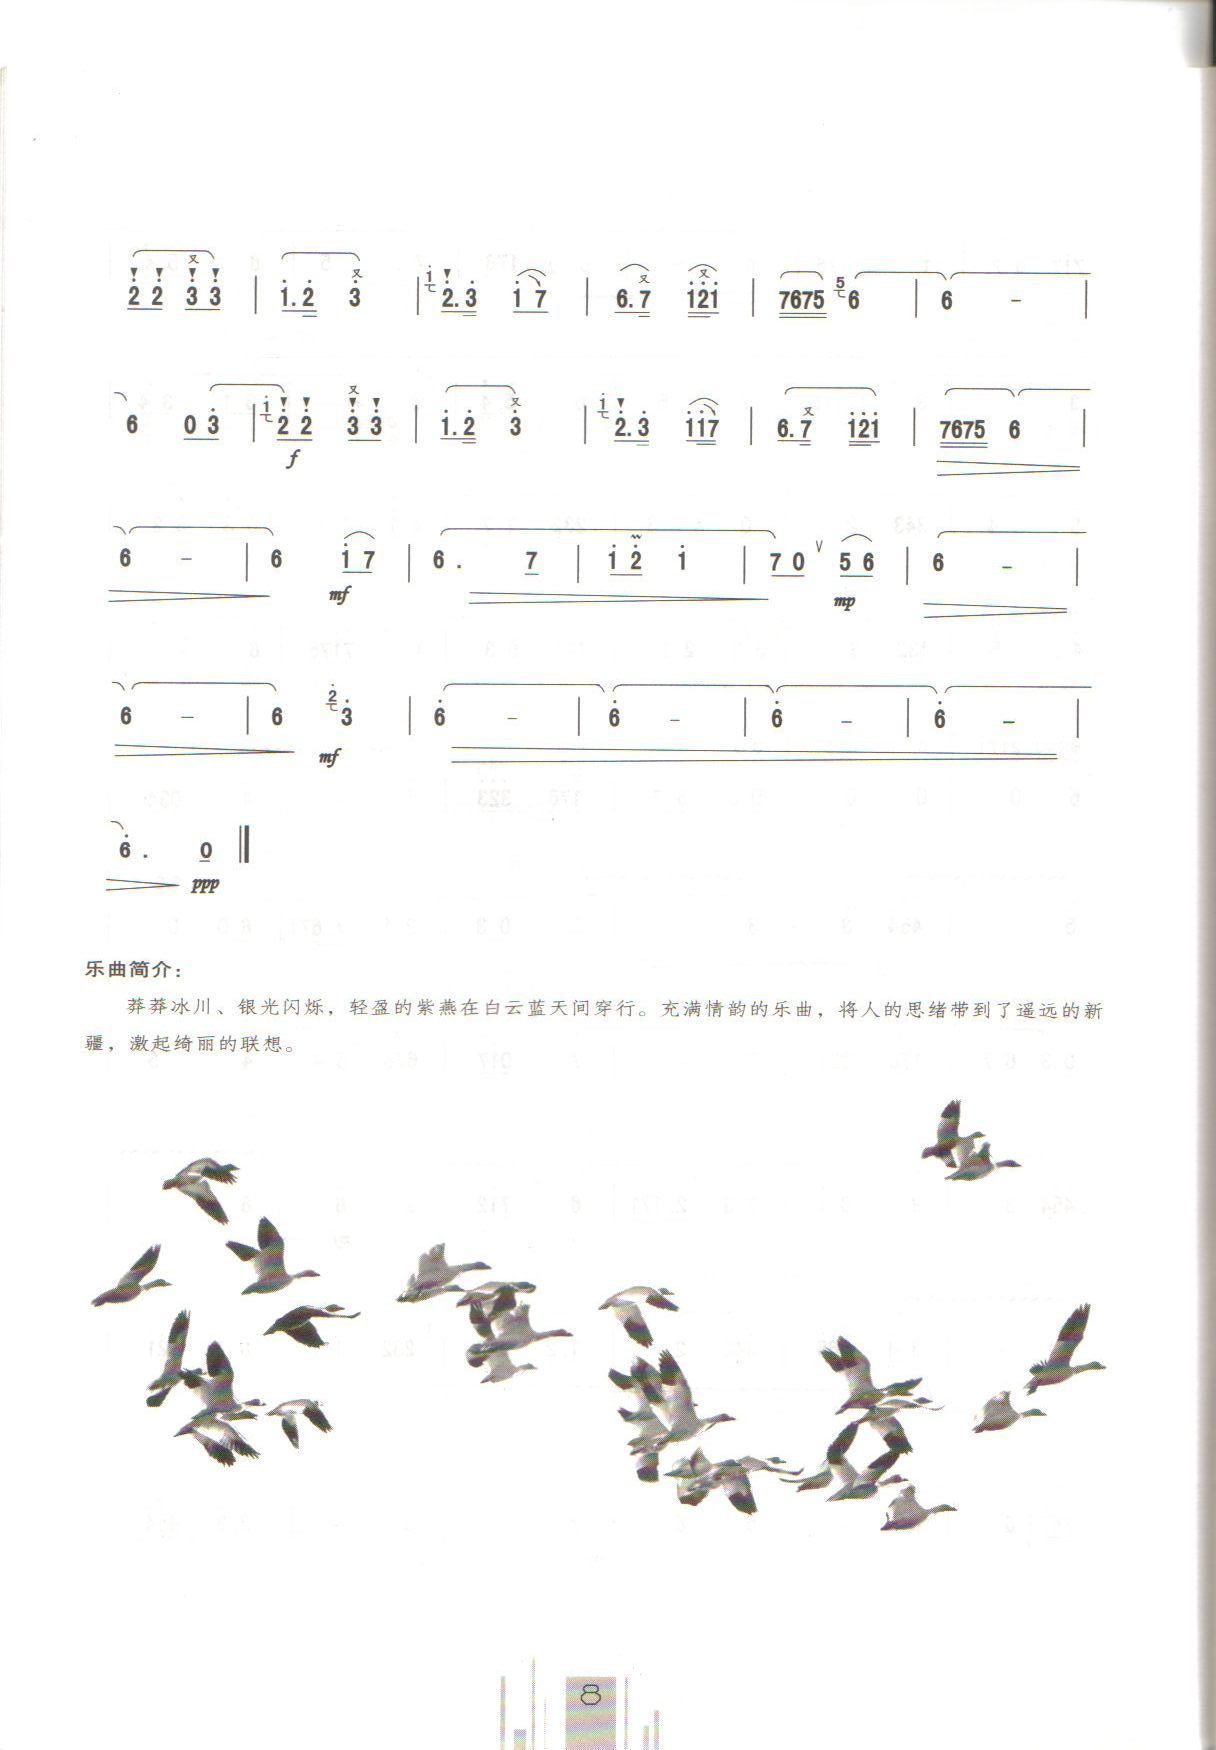 2̇ 2̇ 3̇ 3̇ | 1̇. 2̇ 3̇ | 2̇. 3̇ 1̇ 7 | 6. 7 1̇2̇1̇ | 7675 6 | 6 – |
6 0 3̇ | 2̇ 2̇ 3̇ 3̇ | 1̇. 2̇ 3̇ | 2̇. 3̇ 1̇1̇7 | 6. 7 1̇2̇1̇ | 7675 6 |
f
6 – | 6 1̇ 7 | 6 . 7 | 1̇ 2̇ 1̇ | 7 0 ∨ 5 6 | 6 – |
mf mp
6 – | 6 3̇ | 6̇ – | 6̇ – | 6̇ – | 6̇ – |
mf
6̇ . 0 ‖
ppp
乐曲简介：
莽莽冰川、银光闪烁，轻盈的紫燕在白云蓝天间穿行。充满情韵的乐曲，将人的思绪带到了遥远的新
疆，激起绮丽的联想。
8